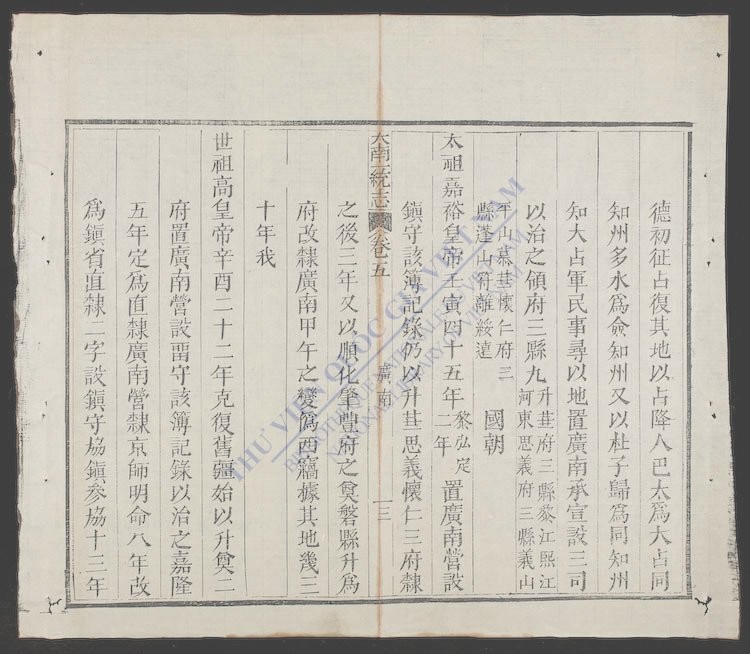 德初征占復其地以占降人巴太爲大占同
知州多水爲僉知州又以杜子歸爲同知州
知大占軍民事尋以地置廣南承宣設三司
以治之領府三縣九升𦬉府三縣黎江熙江河東思義府三縣義山
平山慕𦬉懷仁府三縣蓬山符離綏遠國朝
太祖嘉裕皇帝壬寅四十五年黎弘定二年置廣南營設
鎮守該簿記錄仍以升𦬉思義懷仁三府隸
大南一統志 卷之五 廣南 一三
之後三年又以順化肇豐府之奠磐縣升爲
府改隸廣南甲午之變爲西竊據其地幾三
十年我
世祖高皇帝辛酉二十二年克復舊疆始以升奠二
府置廣南營設留守該簿記錄以治之嘉隆
五年定爲直隸廣南營隸京師明命八年改
爲鎮省直隸二字設鎮守協鎮參協十三年
THƯ VIỆN QUỐC GIA VIỆT NAM
BIBLIOTHÈQUE NATIONALE DU VIETNAM
NATIONAL LIBRARY OF VIETNAM